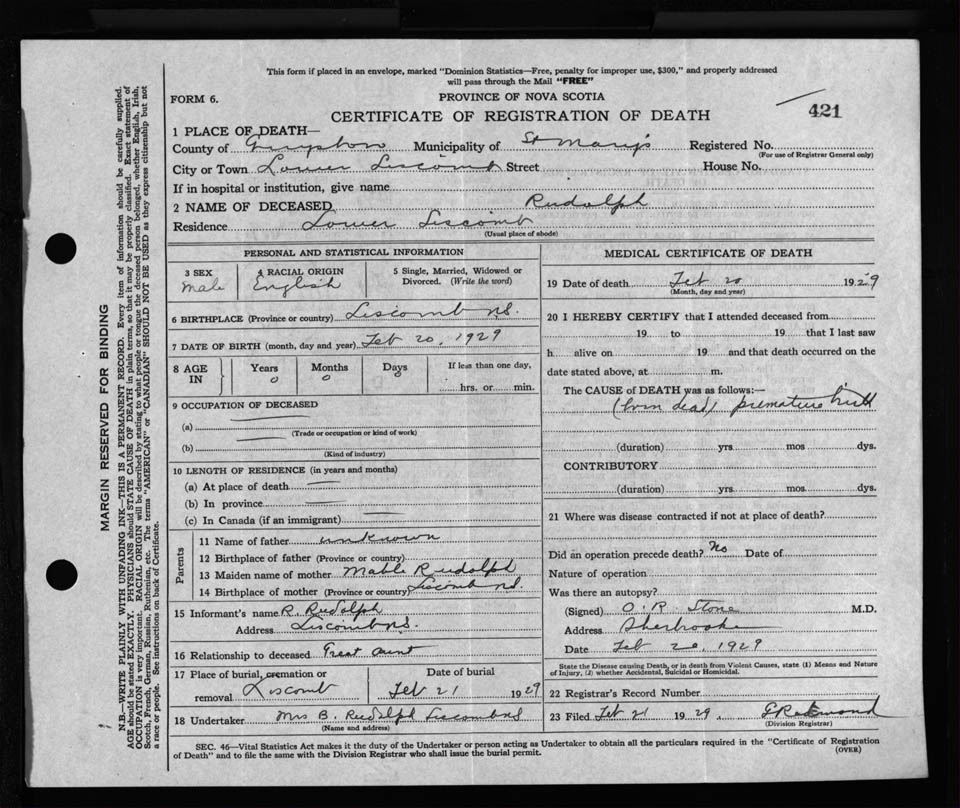 This form if placed in an envelope, marked "Dominion Statistics—Free, penalty for improper use, $300," and properly addressed
will pass through the Mail "FREE"
FORM 6.
PROVINCE OF NOVA SCOTIA
421
CERTIFICATE OF REGISTRATION OF DEATH
1 PLACE OF DEATH—
County of Guysboro Municipality of St Mary's Registered No.
(For use of Registrar General only)
City or Town Lower Liscomb Street House No.
If in hospital or institution, give name
2 NAME OF DECEASED Rudolph
Residence Lower Liscomb
(Usual place of abode)
PERSONAL AND STATISTICAL INFORMATION
3 SEX 4 RACIAL ORIGIN 5 Single, Married, Widowed or
Male English Divorced. (Write the word)
6 BIRTHPLACE (Province or country) Liscomb N.S.
7 DATE OF BIRTH (month, day and year) Feb 20, 1929
8 AGE IN Years Months Days If less than one day,
0 0 0 hrs. or min.
9 OCCUPATION OF DECEASED
(a)
(Trade or occupation or kind of work)
(b)
(Kind of industry)
10 LENGTH OF RESIDENCE (in years and months)
(a) At place of death
(b) In province
(c) In Canada (if an immigrant)
Parents
11 Name of father unknown
12 Birthplace of father (Province or country)
13 Maiden name of mother Mable Rudolph
14 Birthplace of mother (Province or country) Liscomb N.S.
15 Informant's name R. Rudolph
Address Liscomb N.S.
16 Relationship to deceased Great Aunt
17 Place of burial, cremation or Date of burial
removal Liscomb Feb 21 1929
18 Undertaker Mrs B. Rudolph Liscomb N.S.
(Name and address)
MEDICAL CERTIFICATE OF DEATH
19 Date of death Feb 20 1929
(Month, day and year)
20 I HEREBY CERTIFY that I attended deceased from
19 to 19 that I last saw
h alive on 19 and that death occurred on the
date stated above, at m.
The CAUSE of DEATH was as follows:—
(born dead) premature birth
(duration) yrs mos dys.
CONTRIBUTORY
(duration) yrs mos dys.
21 Where was disease contracted if not at place of death?
Did an operation precede death? No Date of
Nature of operation
Was there an autopsy?
(Signed) O. R. Stone M.D.
Address Sherbrooke
Date Feb 20, 1929
State the Disease causing Death, or in death from Violent Causes, state (1) Means and Nature
of Injury, (2) whether Accidental, Suicidal or Homicidal.
22 Registrar's Record Number
23 Filed Feb 21 1929
(Division Registrar)
SEC. 46—Vital Statistics Act makes it the duty of the Undertaker or person acting as Undertaker to obtain all the particulars required in the "Certificate of Registration
of Death" and to file the same with the Division Registrar who shall issue the burial permit. (OVER)
MARGIN RESERVED FOR BINDING
N.B.—WRITE PLAINLY WITH UNFADING INK—THIS IS A PERMANENT RECORD. Every item of information should be carefully supplied.
AGE should be stated EXACTLY. PHYSICIANS should STATE CAUSE OF DEATH in plain terms, so that it may be properly classified. Exact statement of
OCCUPATION is very important. RACIAL ORIGIN will be described by stating to what people or tongue the deceased person belonged, whether English, Irish,
Scotch, French, German, Russian, Ruthenian, etc. The terms "AMERICAN" or "CANADIAN" SHOULD NOT BE USED as they express citizenship but not
a race or people. See instructions on back of Certificate.